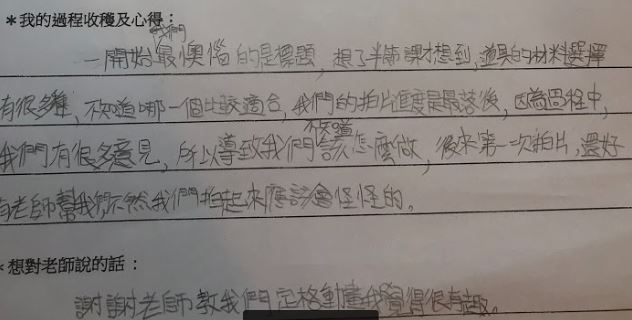 *我的過程收穫及心得：
一開始我們最懊惱的是標題，想了半節課才想到，道具的材料選擇
有很多種，不知道哪一個比較適合，我們的拍片進度是最落後，因為過程中，
我們有很多意見，所以導致我們不知道該怎麼做，後來第一次拍片，還好
有老師幫我們不然我們拍起來應該會怪怪的。
*想對老師說的話：
謝謝老師教我們定格動畫我覺得很有趣。